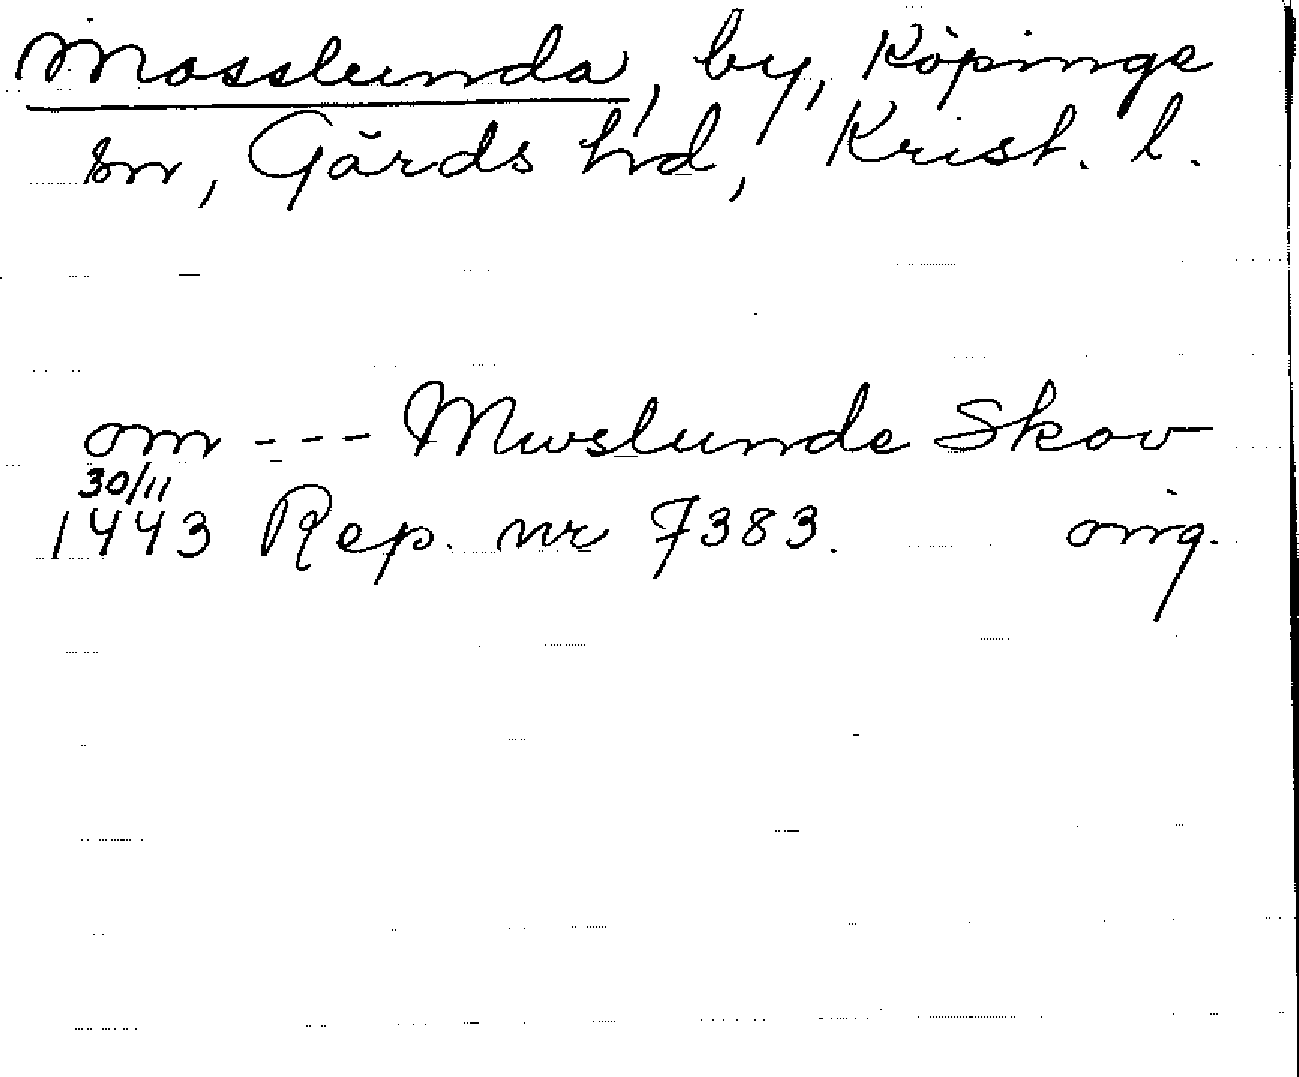 Mosslunda, by, Köpinge
sn, Gärds hd, Krist. l.
om --- Mwslunde Skov
30/11
1443 Rep. nr 7383. orig.